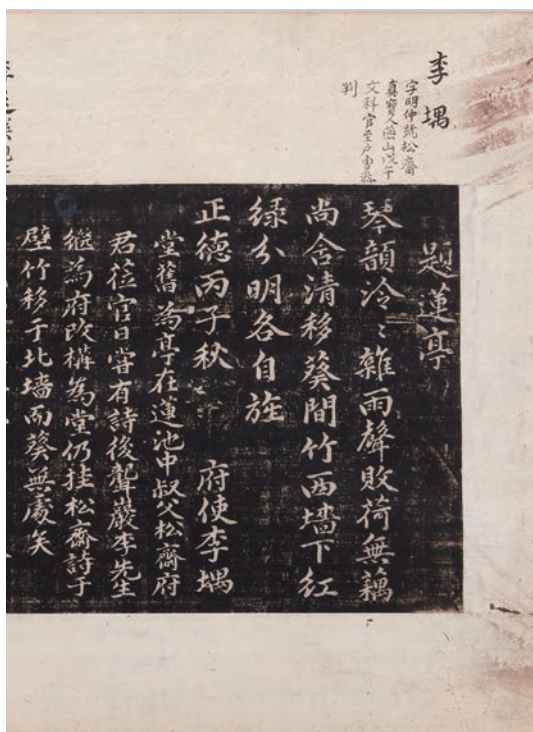 李堣
字明仲號松齋
真寶人燕山戊午
文科官至戶曹參
判
題蓮亭
琴韻泠〻雜雨聲敗荷無藕
尚含清移葵間竹西墻下紅
緑分明各自旌
正德丙子秋 府使李堣
堂舊為亭在蓮池中叔父松齋府
君莅官日嘗有詩後聾巖李先生
繼為府改構為堂仍挂松齋詩于
壁竹移于北墻而葵無處矣